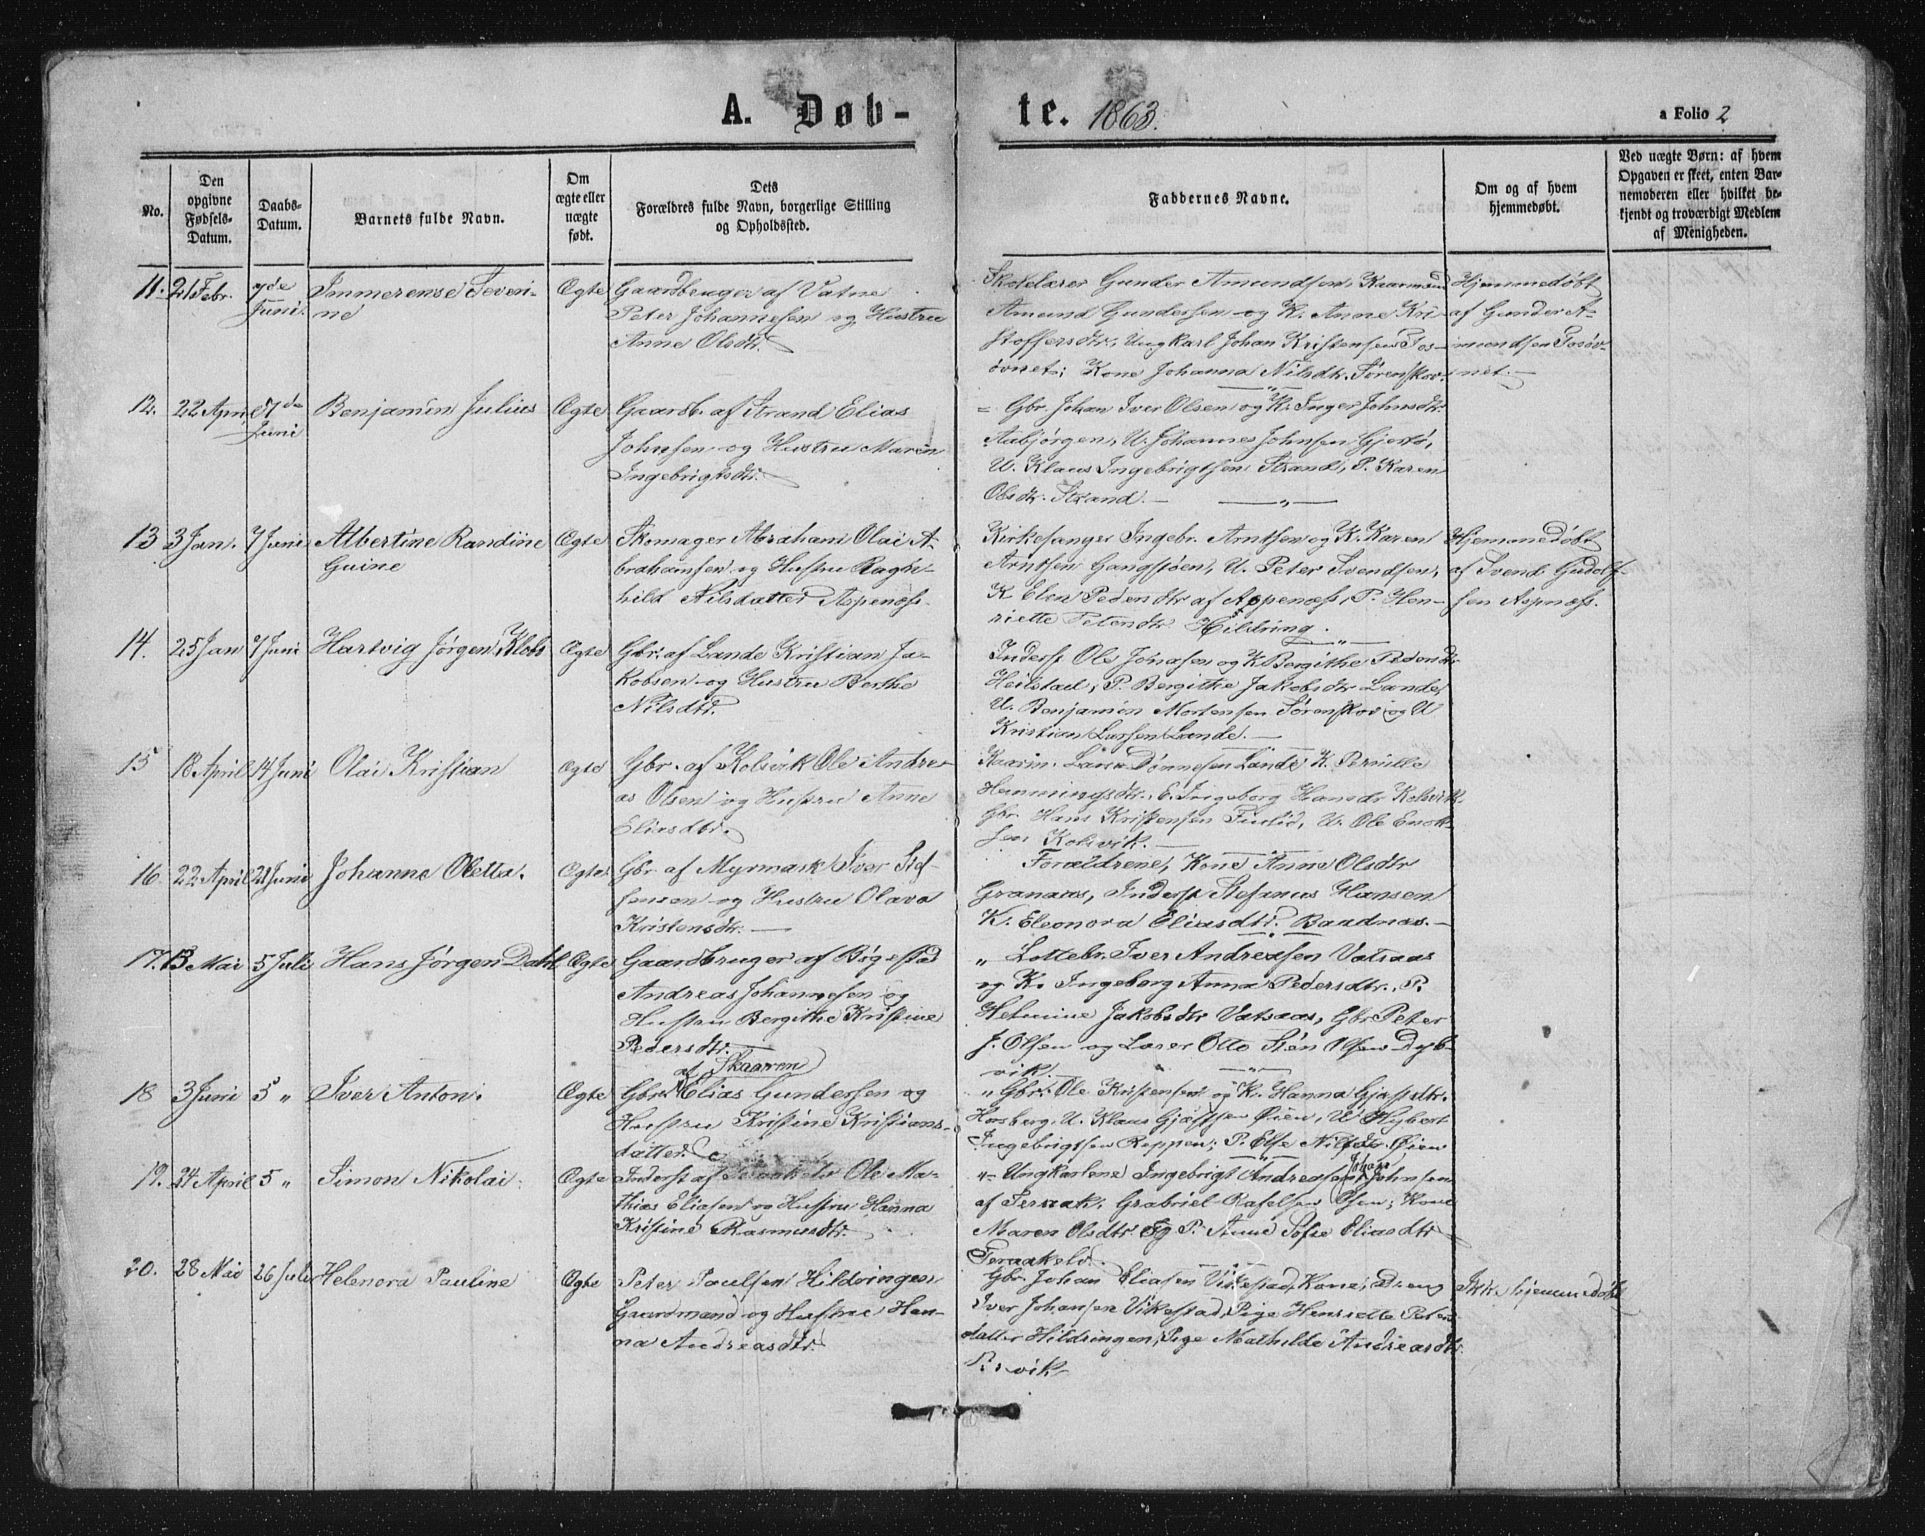 A. Døb-te. 1863.
a Folio 2
No.
Den opgivne Fødsels-Datum.
Daabs-Datum.
Barnets fulde Navn.
Om ægte eller uægte født.
Dets Forældres fulde Navn, borgerlige Stilling og Opholdssted.
Faddernes Navne.
Om og af hvem hjemmedøbt.
Ved uægte Børn: af hvem Opgaven er skeet, enten Barnemoderen eller hvilket bekjendt og troværdigt Medlem af Menigheden.
11. 21 Febr. 7de Juni.
Immerense Severi-
ne
Ægte
Gaardbruger af Vatne
Peter Johannesen og Hustru
Anne Olsdtr.
Skolelærer Gunder Amundsen, Kaarmand
Amund Gundersen og K. Anne Kri-
stoffersdtr. Ungkarl Johan Kristensen Tos-
øvnet; Kone Johanna Nilsdtr. Sørenskov.
Hjemmedøbt
af Gunder A-
mundsen Tosøv-
net.
12. 22 April 7de Juni
Benjamin Julius
Ægte
Gaardb. af Strand Elias
Johnsen og Hustru Maren
Ingebrigtsdtr.
Gbr. Johan Iver Olsen og K. Inger Johnsdtr.
Aabjørgen, U. Johannes Johnsen
U. Klaus Ingebrigtsen Strand, P. Karen
Olsdtr. Strand.
13 3 Jan. 7 Juni
Albertine Randine
Guine
Ægte
Skomager Abraham Olai A-
brahamsen og Hustru Ragn-
hild Nilsdatter Aspenæss.
Kirkesanger Ingebr. Arntsen og K. Karen
Arntsen Gangstøen, U. Peter Svendsen,
K Elen Pedersdtr af Aspenæss, P. Hen-
riette Petersdtr Hildring.
Hjemmedøbt
af Svend Gudolf-
sen Aspnæss.
14. 25 Jan 7 Juni
Hartvig Jørgen Klobs
Ægte
Gbr. af Lande Kristian Ja-
kobsen og Hustru Berthe
Nilsdtr.
Inderst Ole Jonasen og K Bergithe Pedersdtr
Heilstad, P. Bergithe Jakobsdtr Lande,
U. Benjamin Mortensen Sørenskov og U
Kristian Larsen Lande.
15 18 April 14 Juni
Olai Kristian
Ægte
Gbr. af Kolsvik Ole Andre-
as Olsen og Hustru Anne
Eliasdtr.
Dønnesen Lande K. Pernille
Henningsdtr., E. Ingeborg Hansdr Kolsvik.
Gbr. Hans Kristensen U. Ole Enok-
sen Kolsvik.
16. 22 April 21 Juni
Johanne Oletta.
Ægte
Gbr. af Myrmark Iver Stef
fensen og Hustru Olava
Kristensdtr.
Forældrene, Kone Anne Olsdtr
Granaas, Inderst Stefanus Hansen
K. Eleonora Eliasdtr. Baadnæs.
17. 13 Mai 5 Juli
Hans Jørgen Dahl
Ægte
Gaardbruger af Bøgestad
Andreas Johannesen og
Hustru Bergithe Kristine
Pedersdtr.
„ Lottebr. Iver Andreasen Vatsaas
og K. Ingeborg Anna Pedersdtr., P.
Helmine Jakobsdtr Vatsaas, Gbr Peter
J. Olsen og Lærer Otto Steen Olsen Dyb-
vik.
18 3 Juni 5 „
Iver Anton.
Ægte
af Skaaren
Gbr. Elias Gundersen og
Hustru Kristine Kristians-
datter.
„ Gbr. Ole Kristensen og K. Hanna Gjøstdtr.
Horsberg, U. Klaus Gjøstsen Øien, U Hybert
Ingebrigtsen Reppen; P. Else Nilsdtr. Øien
19. 24 April 5 „
Simon Nikolai.
Ægte
Inderst af Teraakelv Ole Ma-
thias Eliasen og Hustru Hanna
Kristine Rasmusdtr.
„ Ungkarlene Ingebrigt Andreasen, Johan Johnsen
af Terraak, Grabriel Rafelsen Osen; Kone
Maren Olsdtr. og P. Anne Sofie Eliasdtr
Teraakelv.
20. 28 Mai 26 Juli
Helenora Pauline
Ægte
Peter Paulsen Hildringen
Gaardmand og Hustru Han-
na Andreasdtr.
Gbr. Johan Eliasen Vikestad, Kone, Dreng
Iver Johansen Vikestad, Pige Henriette Peters
datter Hildringen, Pige Mathilde Andreasdtr
Ikke hjemmedøbt